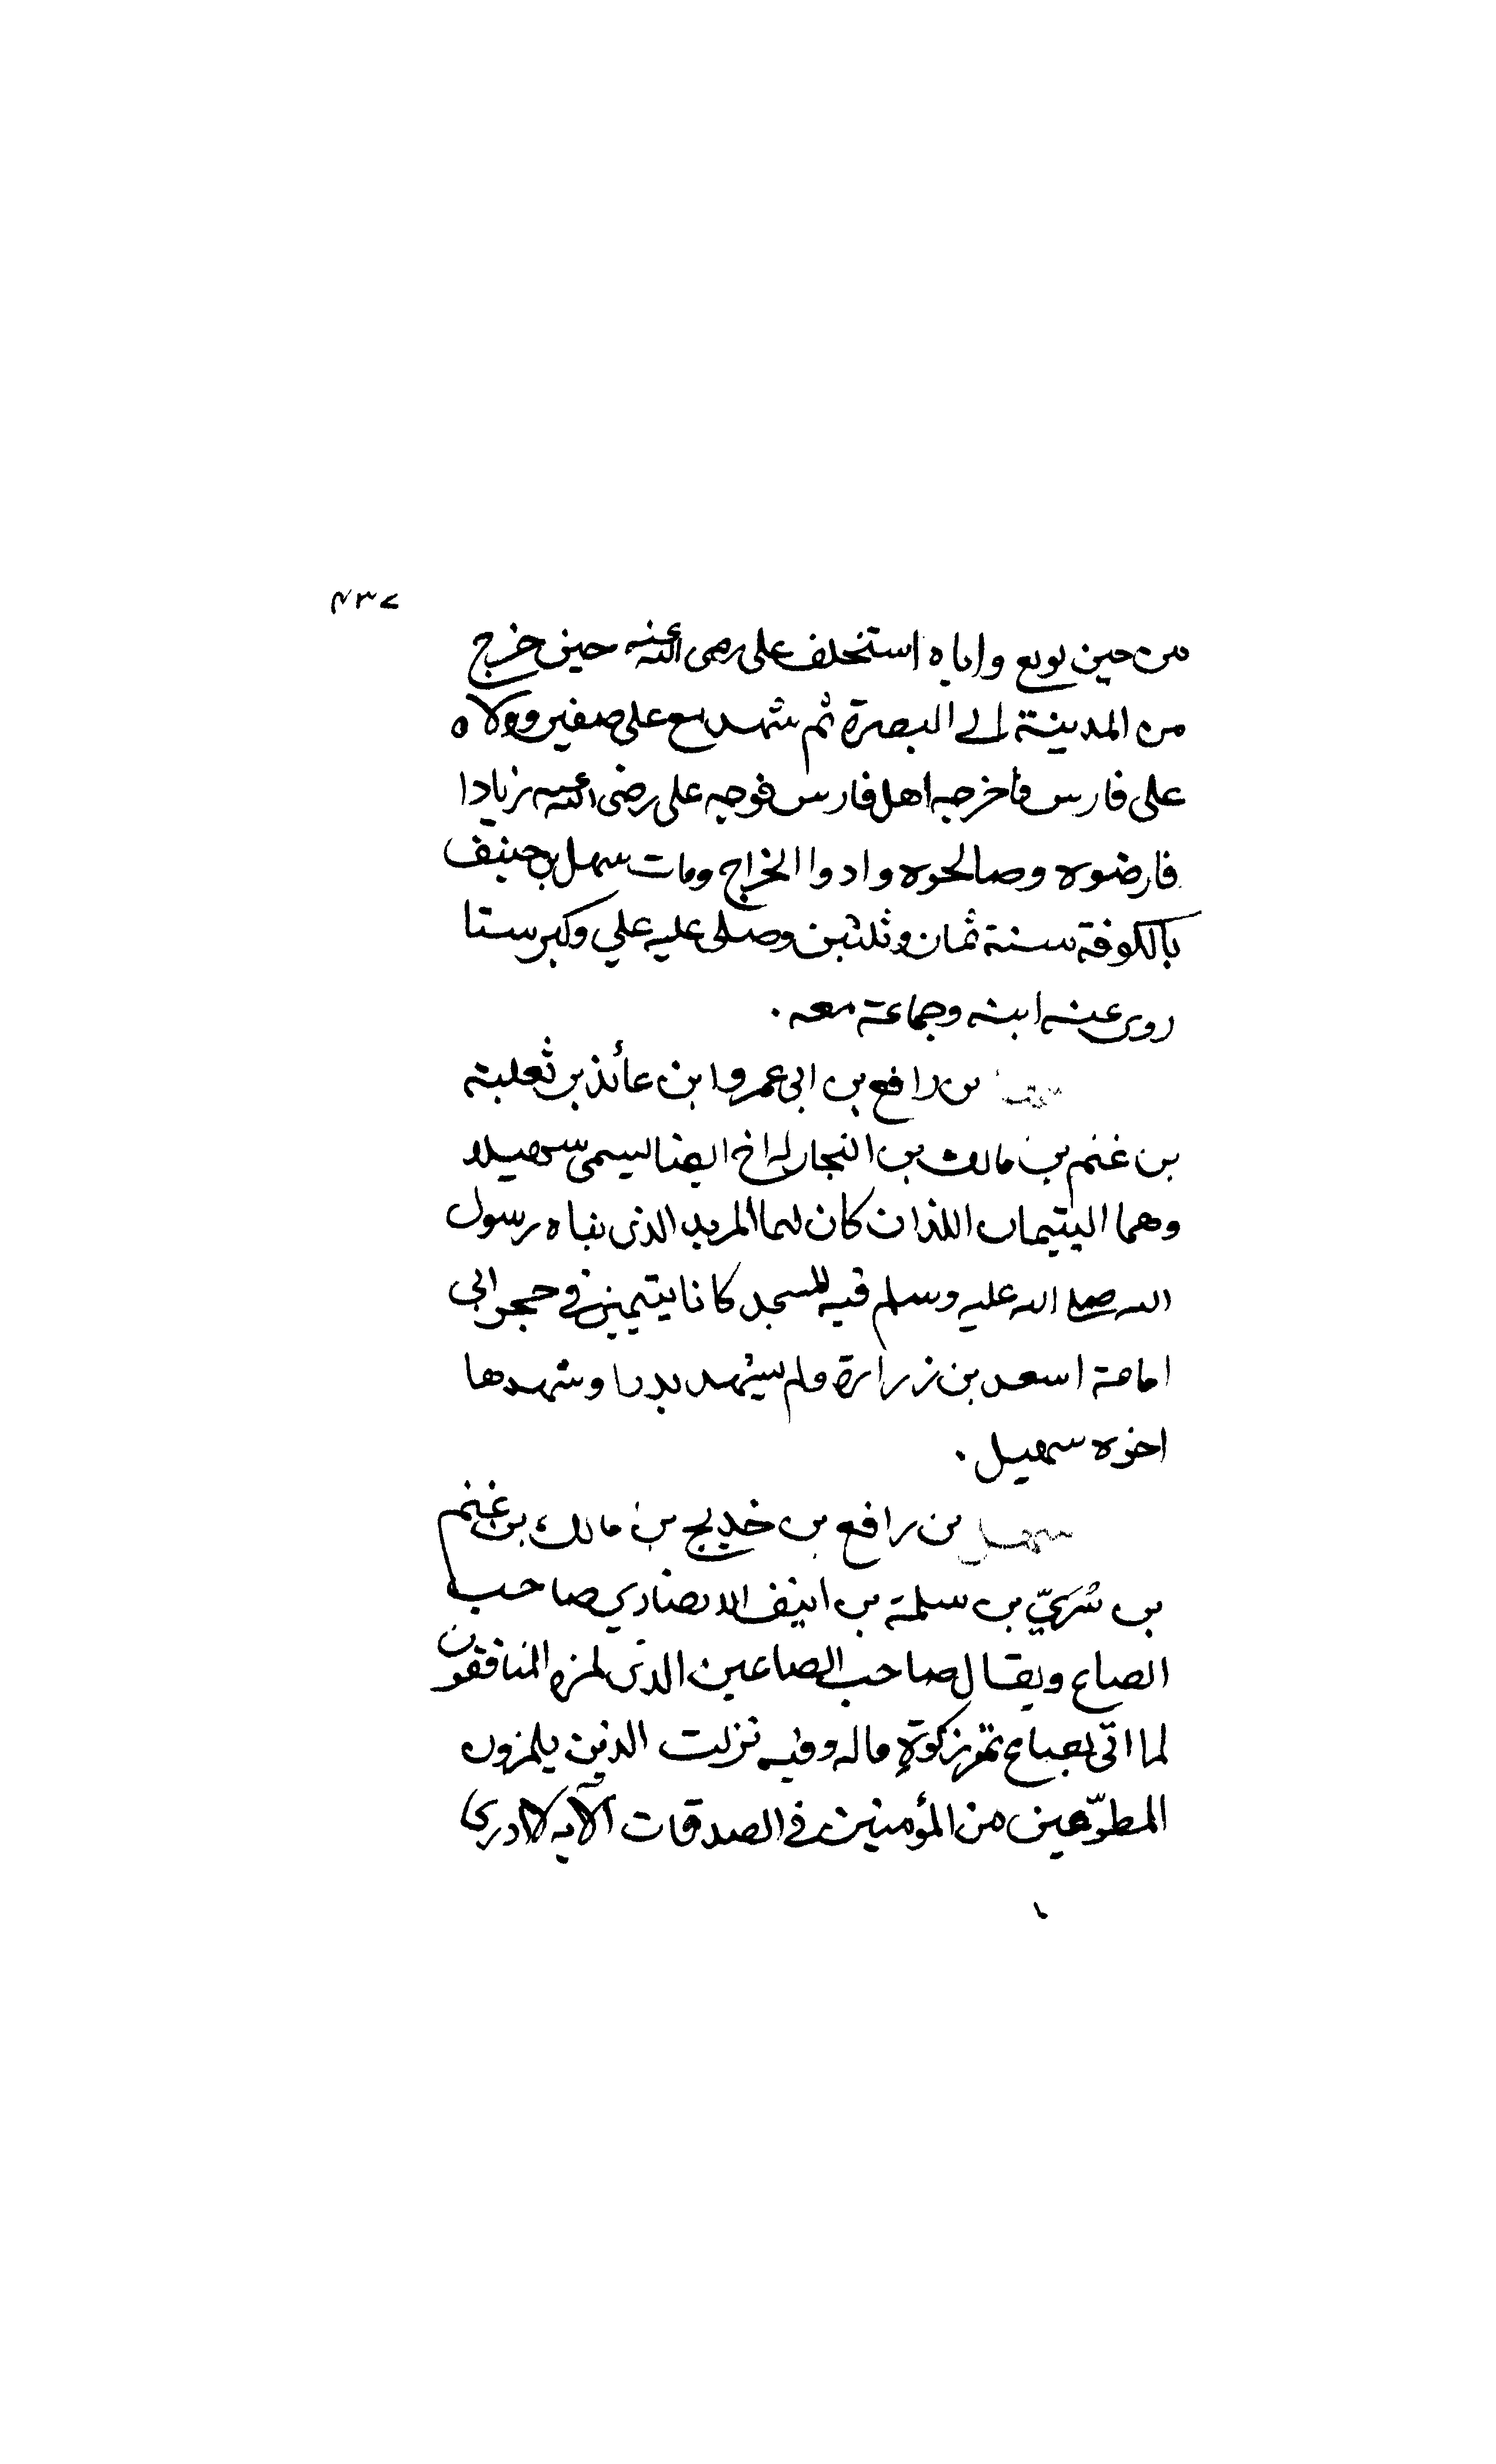 ٤٣٧
من حين بويع واياه استخلف على رضى الله عنه حين خرج
من المدينة الى البصرة ثم شهد مع على صفين وولاه
على فارس فاخرجه اهل فارس فوجه على رضى الله عنه زيادا
فارضوه وصالحوه وادوا الخراج ومات سهل بن حنيف
بالكوفة سنة ثمان وثلثين وصلى عليه علي وكبر ستا
روى عنه ابنه وجماعة معه .
بن رافع بن ابى عمرو ابن عائذ بن ثعلبة
بن غنم بن مالك بن النجار له اخ ايضا يسمى سهيلا
وهما اليتيمان اللذان كان لهما المربد الذى بناه رسول
الله صلى الله عليه وسلم فيه المسجد كانا يتيمين في حجر ابى
امامة اسعد بن زرارة ولم يشهد بدرا وشهدها
اخوه سهيل .
سهل بن رافع بن خديج بن مالك بن غنم
بن سُرَيّ بن سلمة بن انيف الانصاري صاحب
الصاع ويقال صاحب الصاعين الذى لمزه المنافقون
لما اتى بصاع تمر زكوة ماله وفيه نزلت الذين يلمزون
المطوّعين من المؤمنين في الصدقات الآية لا ادرى